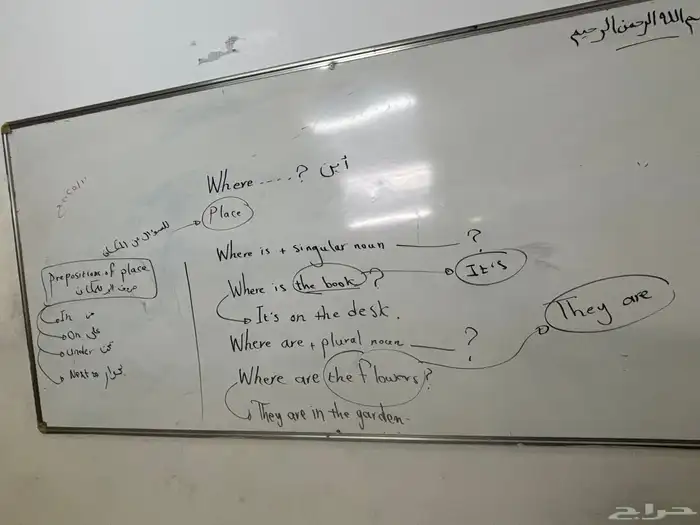 بسم الله الرحمن الرحيم
Where ....? أين
Place
للسؤال عن المكان
Where is + singular noun ______?
Where is the book?
It's
It's on the desk.
Where are + plural noun ______?
They are
Where are the flowers?
They are in the garden.
Preposition of place
حروف الجر للمكان
In في
On على
Under تحت
Next to بجوار
حراج